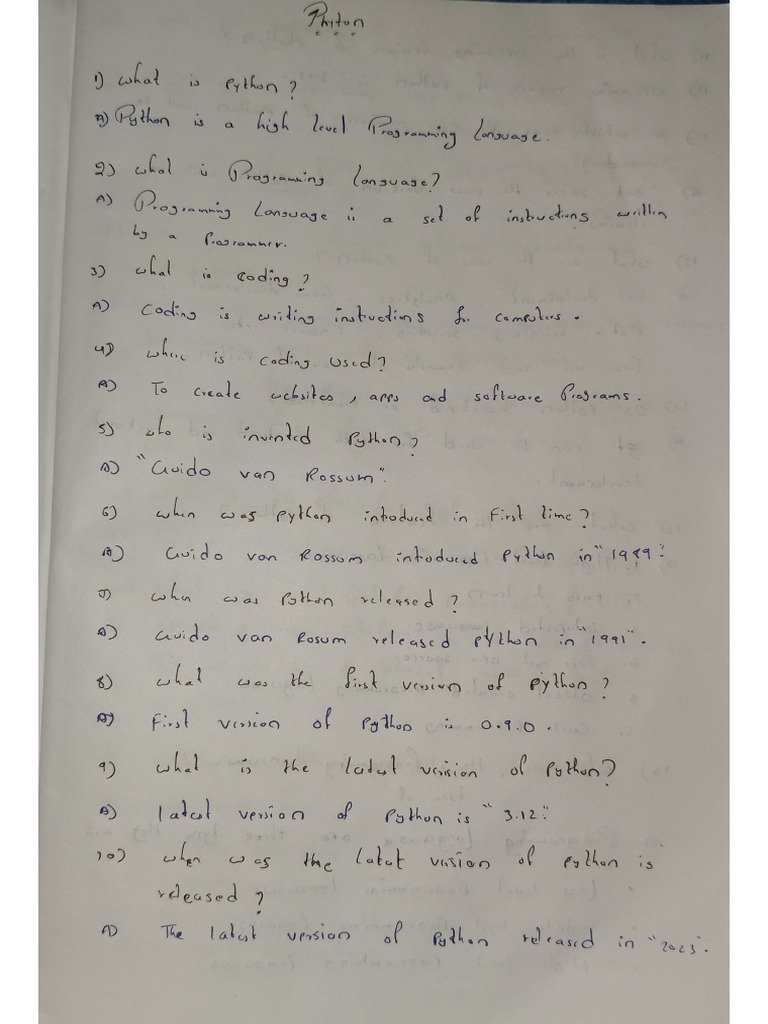 Phyton
1) What is Python?
A) Python is a high level Programming Language.
2) What is Programming Language?
A) Programming Language is a set of instructions written
by a Programmer.
3) What is coding?
A) Coding is writing instructions for computers.
4) Where is coding used?
A) To create websites, apps and software Programs.
5) who is invented Python?
A) "Guido van Rossum".
6) when was python introduced in First time?
A) Guido van Rossum introduced Python in "1989".
7) when was Python released?
A) Guido van Rosum released python in "1991".
8) what was the first version of python?
A) First version of Python is 0.9.0.
9) what is the latest version of Python?
A) latest version of Python is "3.12".
10) when was the latest version of python is
released?
A) The latest version of Python released in "2023".